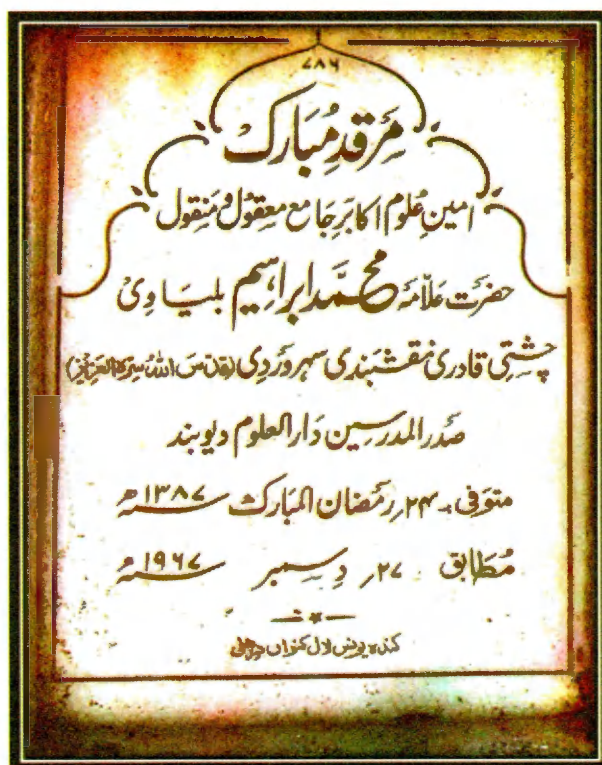 ۷۸۶
مَرقدِ مُبارَک
امینِ عُلوم اکابرَ جَامع معقوُل و مَنقول
حضرَت عَلاّمہ محمَّد ابراہیم بلیَاوِی
چشتِی قادری نقشبَندی سہروَردِی (قدّسَ اللهُ سِرّہُ العَزِیز)
صَدر المدرسِین دَارالعلوم دیوبند
متوَفی ۔ ۲۴؍ رمَضان المبَارکث ۱۳۸۷ھ
مُطَابق ۲۷؍ دِسمبر ۱۹۶۷ء
کندہ یونس لال کنواں دہلی